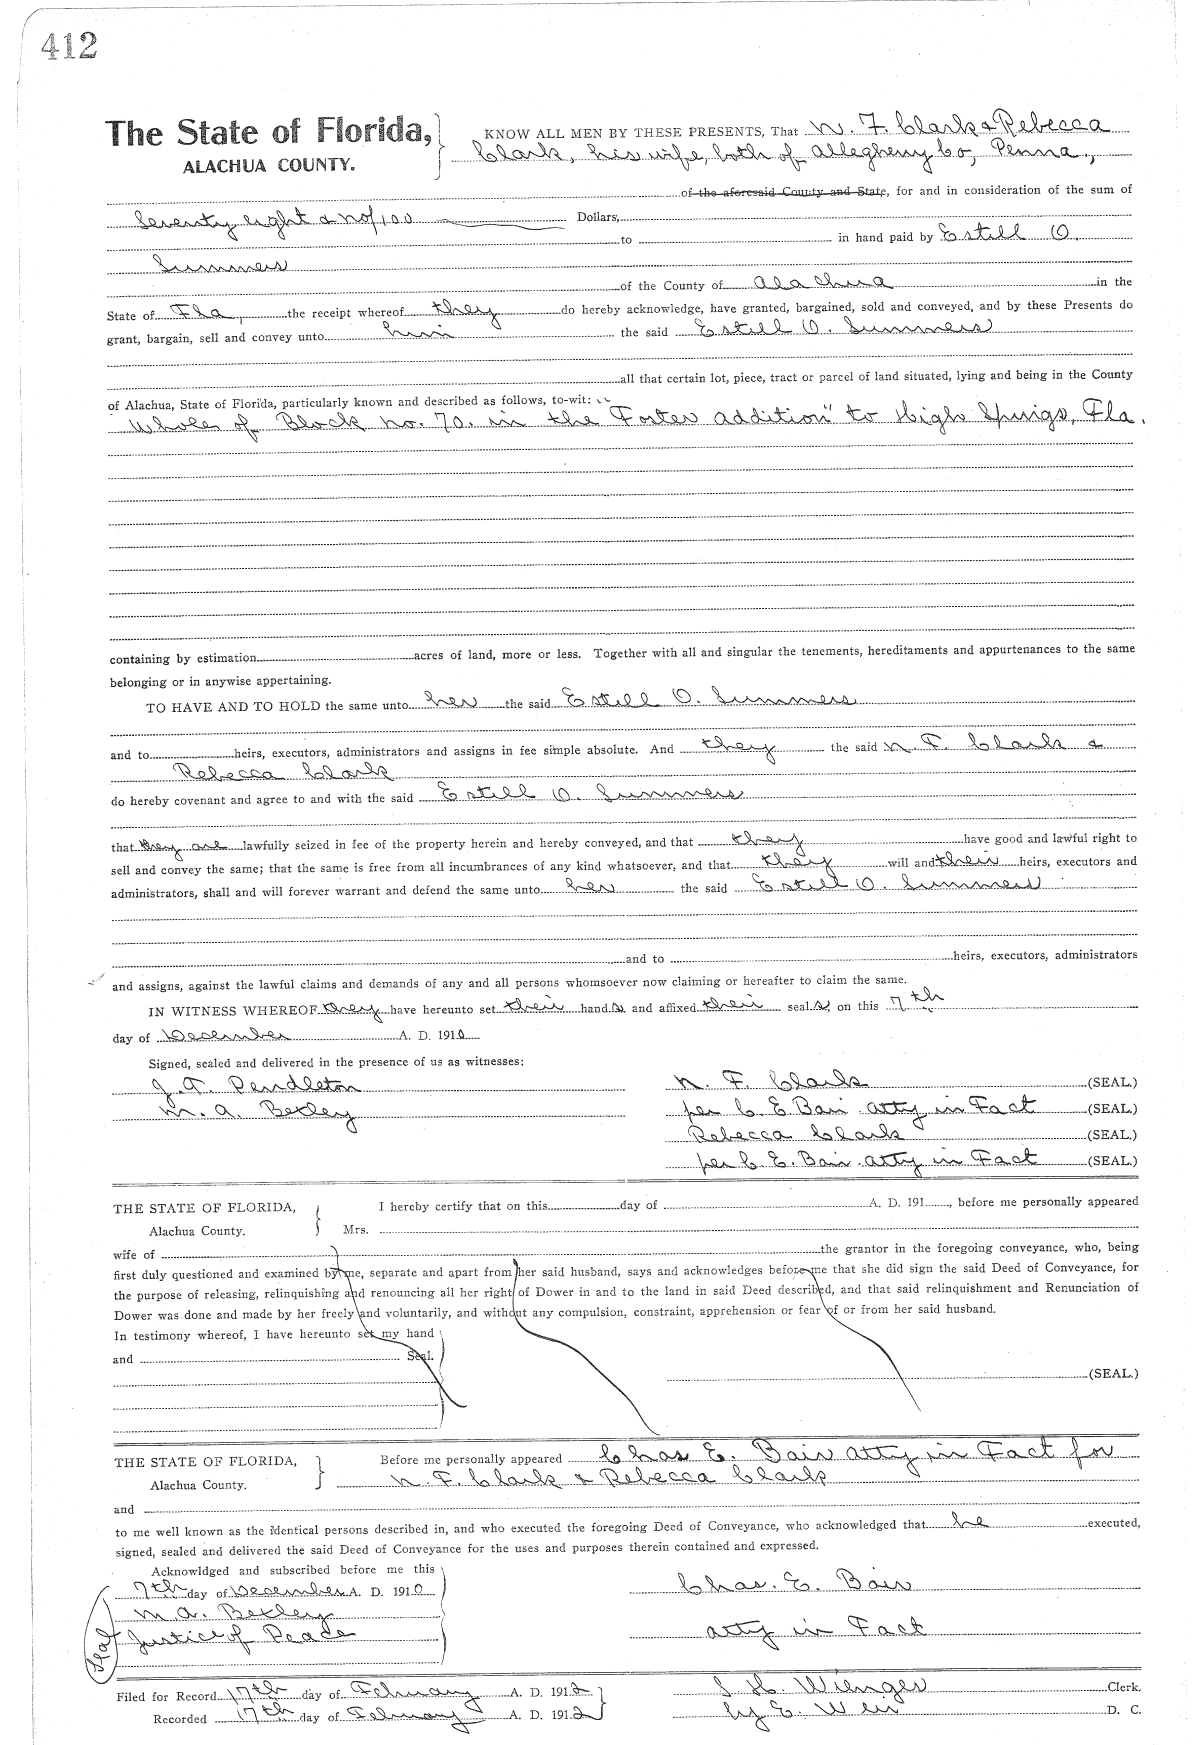 412
The State of Florida, KNOW ALL MEN BY THESE PRESENTS, That N. F. Clark & Rebecca
ALACHUA COUNTY. Clark, his wife, both of Allegheny Co, Penna.,
of the aforesaid County and State, for and in consideration of the sum of
Seventy eight & no/100 Dollars,
to in hand paid by Estill O.
Summers
of the County of Alachua in the
State of Fla, the receipt whereof they do hereby acknowledge, have granted, bargained, sold and conveyed, and by these Presents do
grant, bargain, sell and convey unto him the said Estill O. Summers
all that certain lot, piece, tract or parcel of land situated, lying and being in the County
of Alachua, State of Florida, particularly known and described as follows, to-wit:
Whole of Block No. 70. in the "Foster addition" to High Springs, Fla.
containing by estimation acres of land, more or less. Together with all and singular the tenements, hereditaments and appurtenances to the same
belonging or in anywise appertaining.
TO HAVE AND TO HOLD the same unto her the said Estill O. Summers
and to heirs, executors, administrators and assigns in fee simple absolute. And they the said N. F. Clark &
Rebecca Clark
do hereby covenant and agree to and with the said Estill O. Summers
that they are lawfully seized in fee of the property herein and hereby conveyed, and that they have good and lawful right to
sell and convey the same; that the same is free from all incumbrances of any kind whatsoever, and that they will and their heirs, executors and
administrators, shall and will forever warrant and defend the same unto her the said Estill O. Summers
and to heirs, executors, administrators
and assigns, against the lawful claims and demands of any and all persons whomsoever now claiming or hereafter to claim the same.
IN WITNESS WHEREOF they have hereunto set their hand s and affixed their seal s, on this 7th
day of December A. D. 1910
Signed, sealed and delivered in the presence of us as witnesses:
J. T. Pendleton N. F. Clark (SEAL.)
M. A. Bexley per C. E. Bair atty in Fact (SEAL.)
Rebecca Clark (SEAL.)
per C. E. Bair atty in Fact (SEAL.)
THE STATE OF FLORIDA, I hereby certify that on this day of A. D. 191 , before me personally appeared
Alachua County. Mrs.
wife of the grantor in the foregoing conveyance, who, being
first duly questioned and examined by me, separate and apart from her said husband, says and acknowledges before me that she did sign the said Deed of Conveyance, for
the purpose of releasing, relinquishing and renouncing all her right of Dower in and to the land in said Deed described, and that said relinquishment and Renunciation of
Dower was done and made by her freely and voluntarily, and without any compulsion, constraint, apprehension or fear of or from her said husband.
In testimony whereof, I have hereunto set my hand
and Seal.
(SEAL.)
THE STATE OF FLORIDA, Before me personally appeared Chas E. Bair atty in Fact for
Alachua County. N. F. Clark & Rebecca Clark
and
to me well known as the identical persons described in, and who executed the foregoing Deed of Conveyance, who acknowledged that he executed,
signed, sealed and delivered the said Deed of Conveyance for the uses and purposes therein contained and expressed.
Acknowldged and subscribed before me this
7th day of December A. D. 1910 Chas. E. Bair
M. A. Bexley
Justice of Peace atty in Fact
Seal
Filed for Record 17th day of February A. D. 1912 S. H. Wienges Clerk.
Recorded 17th day of February A. D. 1912 by E. Weir D. C.